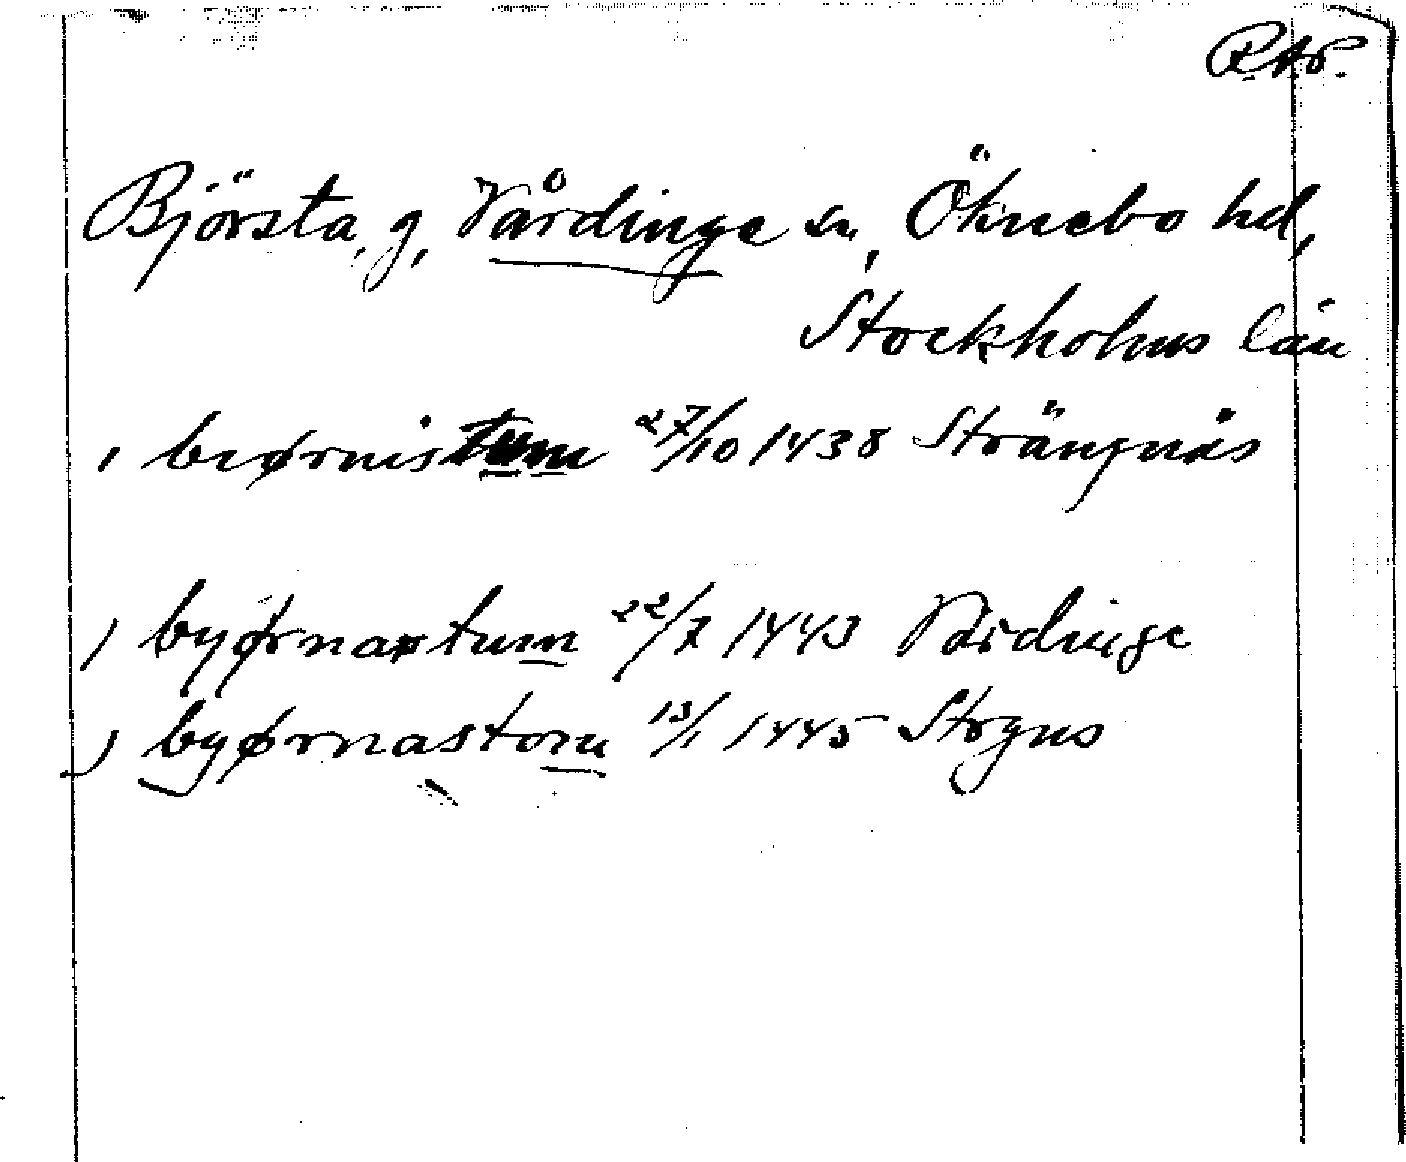 RAP.
Björsta, g, Vårdinge sn, Öknebo hd,
Stockholms län
, biørnistum 27/10 1438 Strängnäs
, byørnaxtum 22/7 1443 Vårdinge
, byørnastom 13/1 1445 Strgns